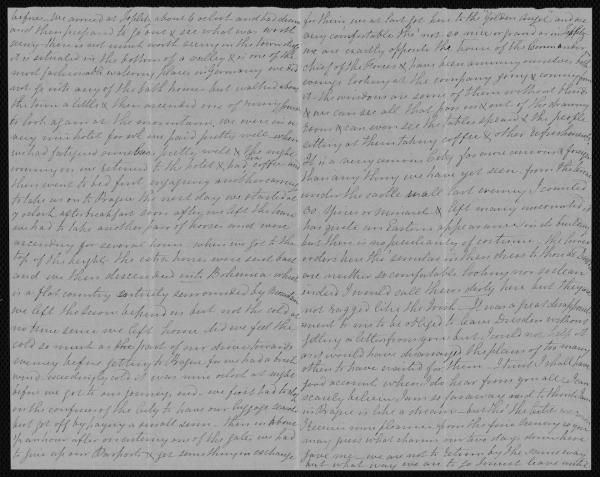 before. We arrived at Toplitz about 6 oclock and had dinner
and then prepared to go out & see what was worth
seeing there is not much worth seeing in the town itself
it is situated in the bottom of a valley & is one of the
most fashionable watering places in Germany we did
not go into any of the bath houses but walked about
the town a little & then ascended one of
to look again at the mountains, we were in a
very nice hotel for wh we paid pretty well when
we had fatigued ourselves pretty well & the night
coming on we returned to the hotel & had coffee and
then went to bed first engaging another carriage
to take us on to Prague the next day we started at
7 oclock after breakfast soon after we left the town
we had to take another pair of horses and were
ascending for several hours when we got to the
top of the heights the extra horses were sent back
and we then descended into Bohemia which
is a flat country entirely surrounded by mountains
we left the snow behind us but not the cold at
no time since we left home did we feel the
cold so much as the part of our drive towards
evening before getting to Prague for we had a brisk
wind exceedingly cold it was nine oclock at night
before we got to our journeys end. we first had to stop
on the confines of the City to have our luggage searched
but got off by paying a small sum. then in about
½ an hour after on entering one of the gates, we had
to give up our Passports & get something in exchange
for them, we at last got here to the "Golden Angel" and are
very comfortable tho' not so nice or grand as in
we are exactly opposite the house of the Commander in
chief of the Forces & have been amusing ourselves
evening looking at the company going & coming from
it. the windows are some of them without blinds
& we can see all that pass in & out of the drawing
room & can even see the tables spread & the people
sitting at them taking coffee & other refreshments.
It is a very curious City far more curious & foreign
than any thing we have yet seen. from the terrace
under the castle wall last evening I counted
30 Spires or Minarets & left many uncounted it
has quite an Eastern appearance in its buildings
but there is no peculiarity of costume. The lower
orders here tho' similar in their dress to those at
are neither so comfortable looking nor so clean
indeed I would call them dirty here but they are
not ragged like the Irish. It was a great disappoint
ment to me to be obliged to leave Dresden without
getting a letter from you but I could not help it
as it would have deranged the plans of too many
others to have waited for them. I trust I shall have
good account when I do hear from you all. I can
scarcely believe I am so far away and to think I am
in Prague is like a dream - but tho' the
I receive
may guess what charm our two days down here
gave me. we are not to return by the same way
but what way we are to go I must leave until